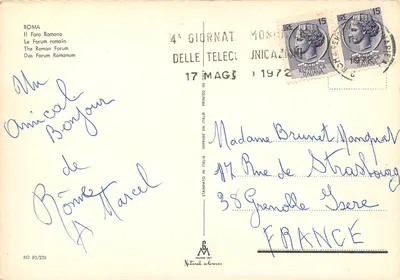 ROMA
Il Foro Romano
Le Forum romain
The Roman Forum
Das Forum Romanum
4ª GIORNATA MONDIALE
DELLE TELECOMUNICAZIONI
17 MAGG 1972
LIRE 15
LIRE 15
1972
Un
Amical
Bonjour
de
Rome
A Marcel
Madame Brunet Manquat
17 Rue de Strasbourg
38 Grenoble Isere
FRANCE
STAMPATO IN ITALIA
IMPRIMÉ EN ITALIE
PRINTED IN
RO 80/250